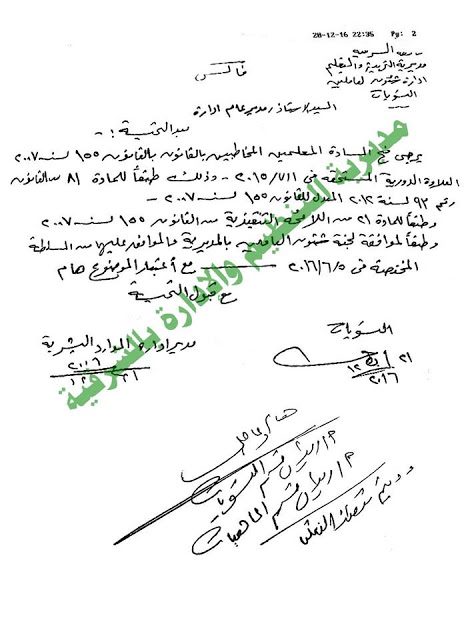 20-12-16 22:35 Pg: 2
مديرية التربية والتعليم
ادارة شئون العاملين
التسويات
فاكس
السيد الاستاذ / مدير عام ادارة
بعد التحية :-
يرجى منح السادة المعلمين المخاطبين بالقانون بالقانون ١٥٥ لسنة ٢٠٠٧
العلاوة الدورية المستحقة فى ٢٠١٥/٧/١ - وذلك طبقاً للمادة ٨٩ من القانون
رقم ٩٣ لسنة ٢٠١٢ المعدل للقانون ١٥٥ لسنة ٢٠٠٧ -
وطبقاً للمادة ٢١ من اللائحة التنفيذية من القانون ١٥٥ لسنة ٢٠٠٧
وطبقاً لموافقة لجنة شئون العاملين بالمديرية والموافق عليها من السلطة
المختصة فى ٢٠١٦/٦/٥ مع اعتبار الموضوع هام
مع قبول التحية
التسويات
مدير ادارة الموارد البشرية
٢١
١٢
٢٠١٦
٢٠١٦
١٢ ٢١
هام وعاجل
أ / رئيس قسم التسويات
أ / رئيس قسم الماهيات
مديرية التنظيم والادارة بالشرقية